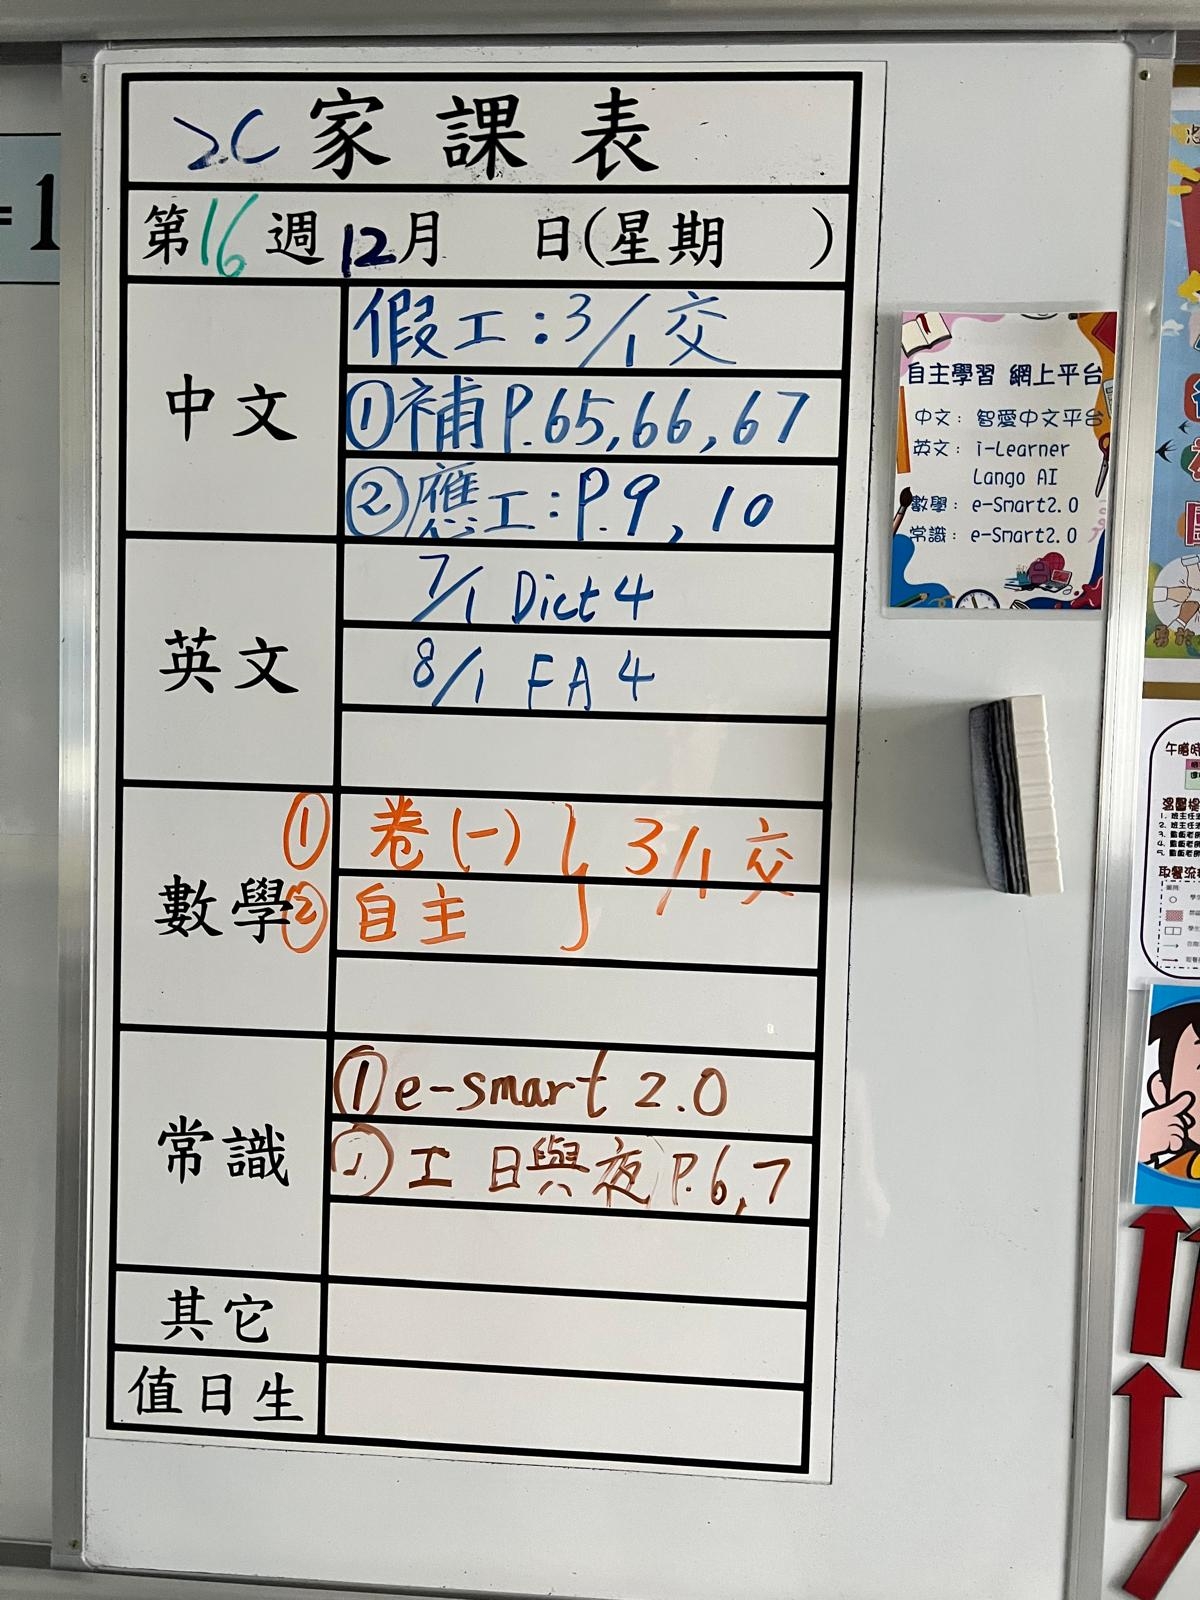 2C 家課表
第16週12月 日(星期 )
中文
假工:3/1交
①補P.65,66,67
②應工:P.9,10
英文
7/1 Dict 4
8/1 FA 4
數學
① 卷(一) } 3/1交
② 自主
常識
①e-smart 2.0
②工 日與夜 P.6,7
其它
值日生
自主學習 網上平台
中文: 智愛中文平台
英文: i-Learner
Lango AI
數學: e-Smart2.0
常識: e-Smart2.0
=1
午膳時
溫馨提
取餐流